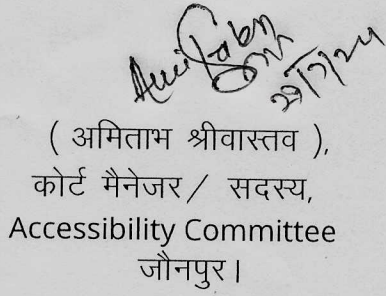 29/7/24
( अमिताभ श्रीवास्तव ),
कोर्ट मैनेजर / सदस्य,
Accessibility Committee
जौनपुर।